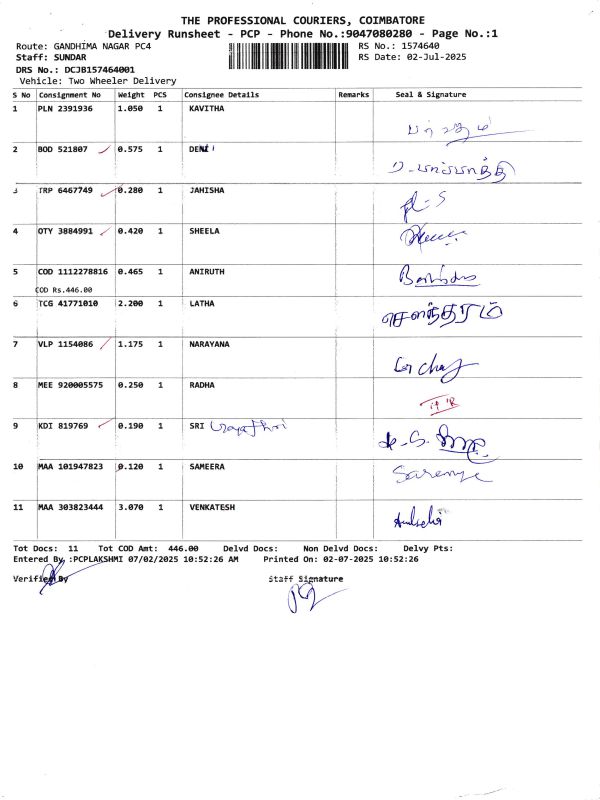 THE PROFESSIONAL COURIERS, COIMBATORE
Delivery Runsheet - PCP - Phone No.:9047080280 - Page No.:1
Route: GANDHIMA NAGAR PC4 RS No.: 1574640
Staff: SUNDAR RS Date: 02-Jul-2025
DRS No.: DCJB157464001
Vehicle: Two Wheeler Delivery
S No Consignment No Weight PCS Consignee Details Remarks Seal & Signature
1 PLN 2391936 1.050 1 KAVITHA
2 BOD 521807 0.575 1
3 TRP 6467749 0.280 1 JAHISHA
4 OTY 3884991 0.420 1 SHEELA
5 COD 1112278816 0.465 1 ANIRUTH
COD Rs.446.00
6 TCG 41771010 2.200 1 LATHA சௌந்தரம்
7 VLP 1154086 1.175 1 NARAYANA
8 MEE 920005575 0.250 1 RADHA
9 KDI 819769 0.190 1 SRI
10 MAA 101947823 0.120 1 SAMEERA
11 MAA 303823444 3.070 1 VENKATESH
Tot Docs: 11 Tot COD Amt: 446.00 Delvd Docs: Non Delvd Docs: Delvy Pts:
Entered By :PCPLAKSHMI 07/02/2025 10:52:26 AM Printed On: 02-07-2025 10:52:26
Verified By Staff Signature